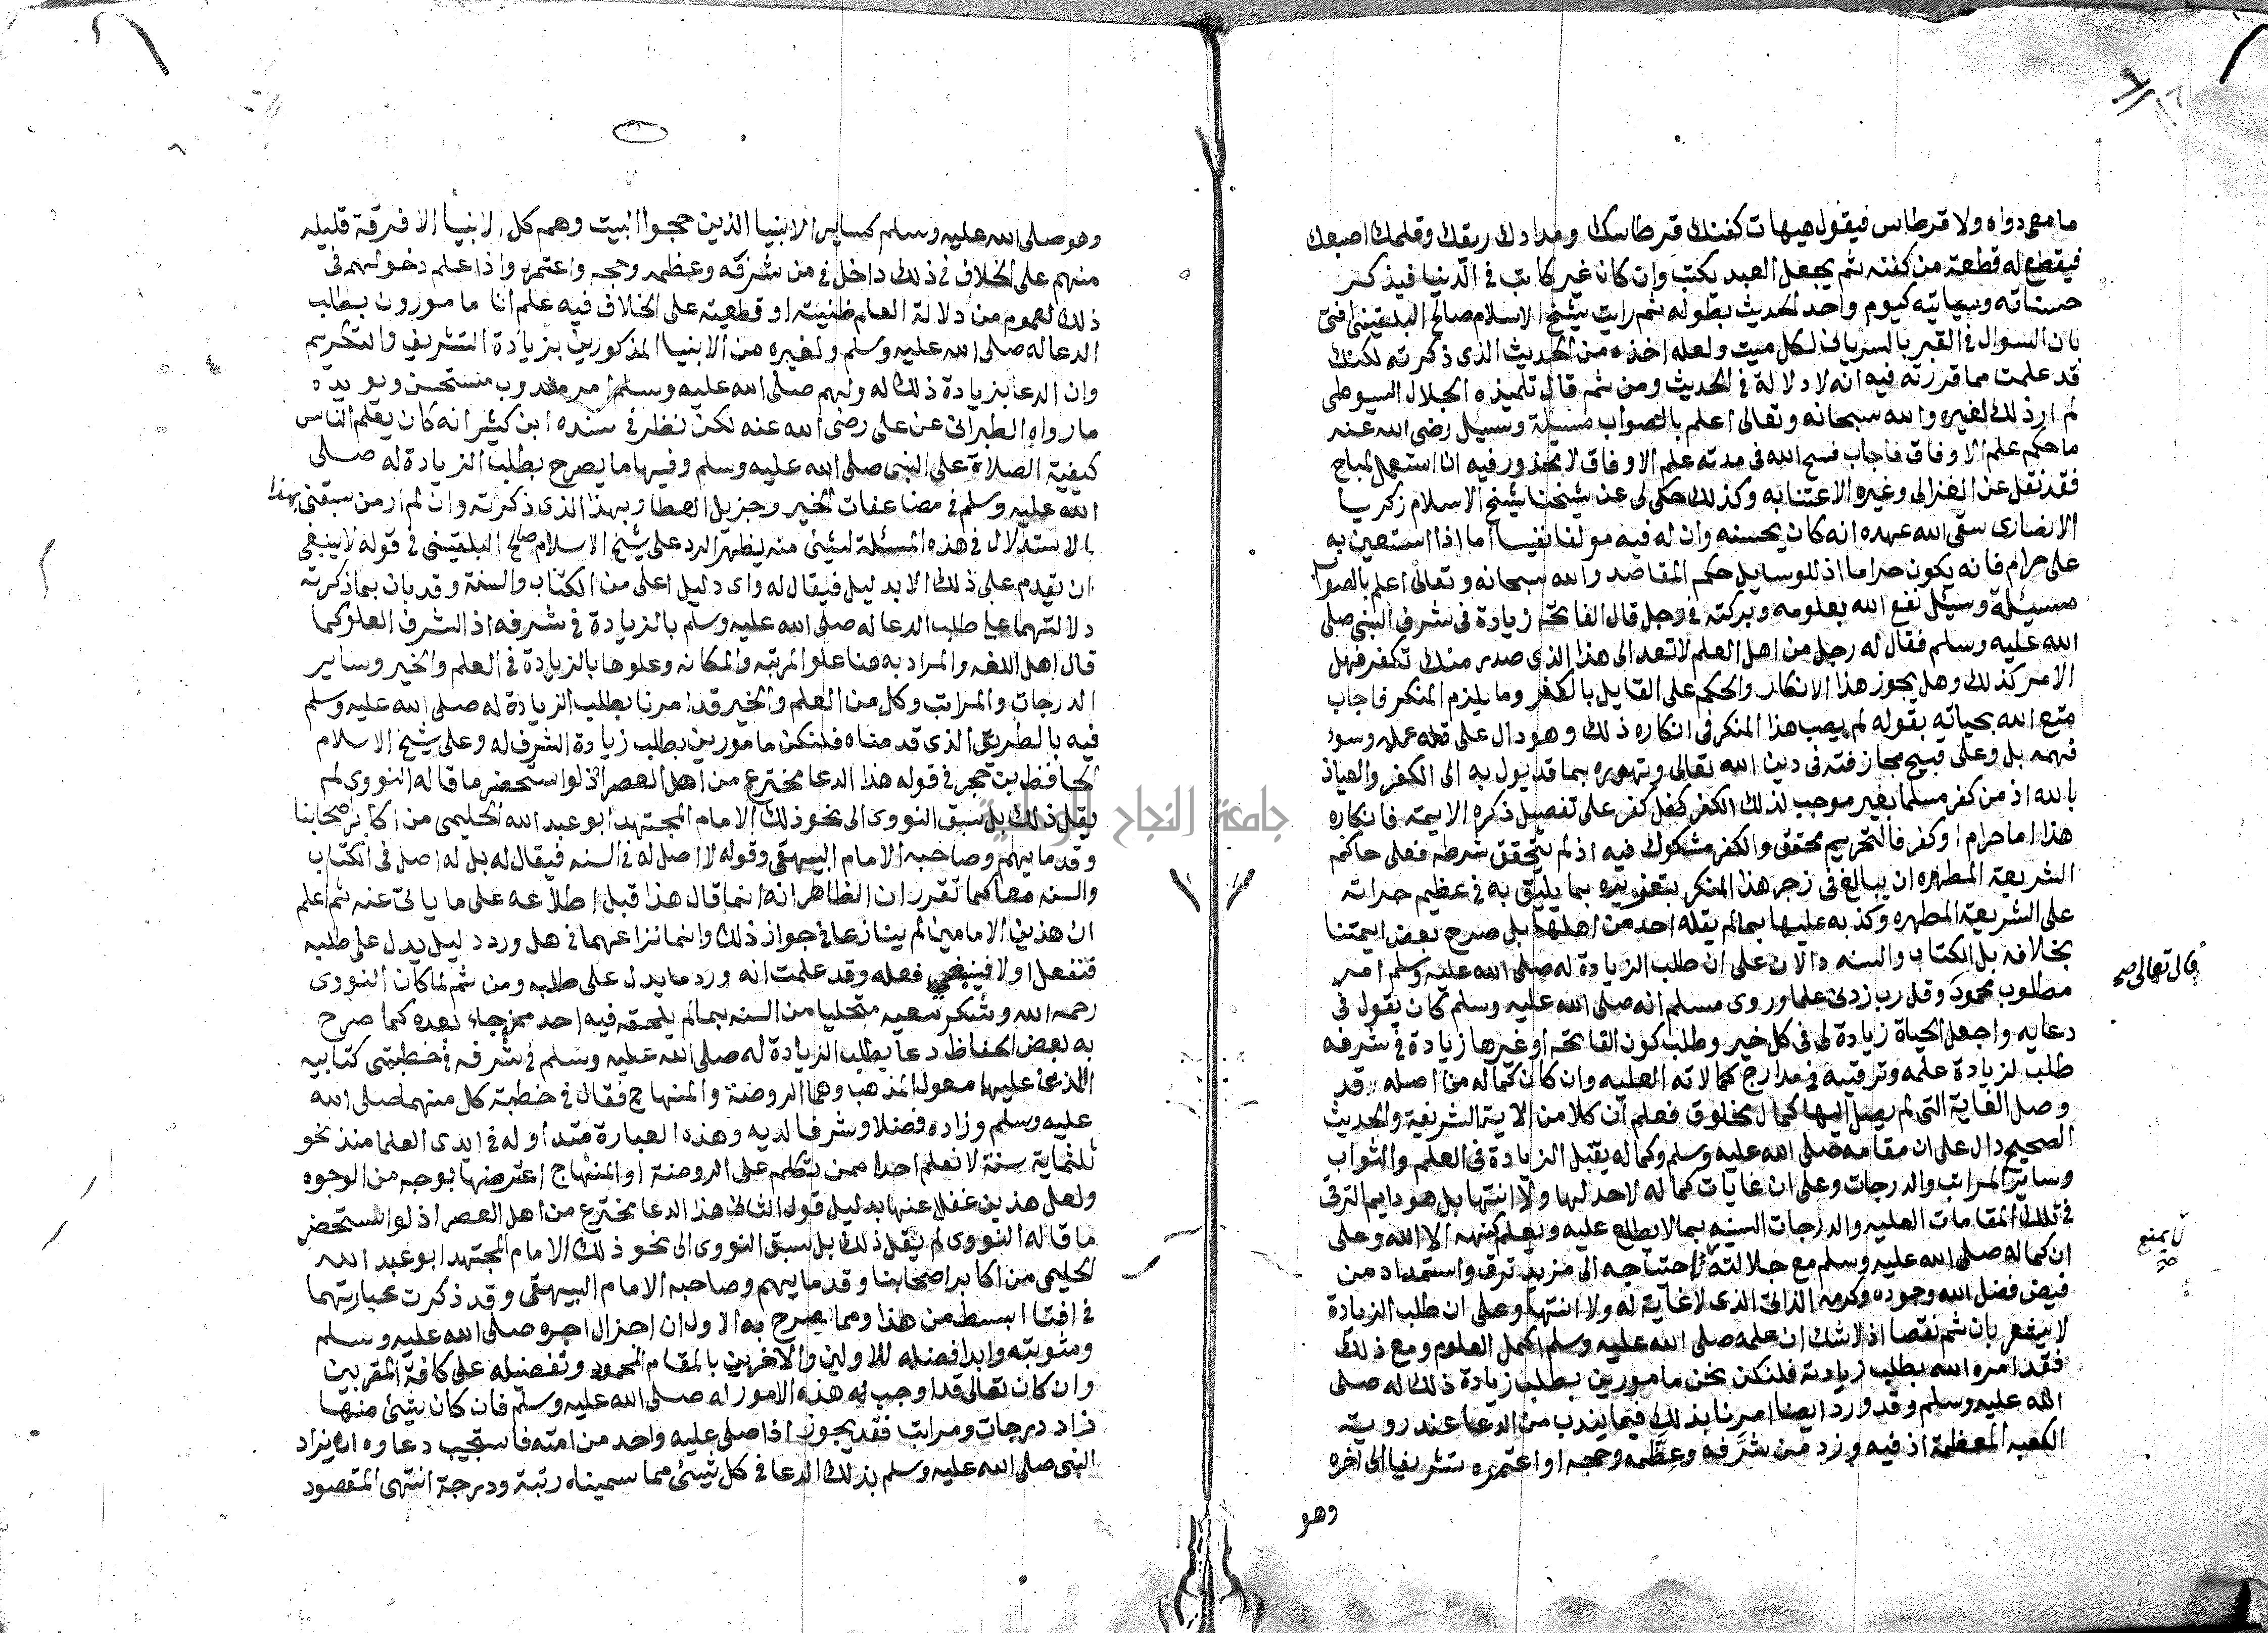 ما معي دواه ولا قرطاس فيقول هيهات كفنك قرطاسك ومدادك ريقك وقلمك اصبعك
فيقطع له قطعة من كفنه ثم يجعل العبد يكتب وان كان غير كاتب في الدنيا فيذكر
حسناته وسياته كيوم واحد الحديث بطوله ثم رايت شيخ الاسلام صالح البلقيني افتى
بان السوال في القبر بالسرياني لكل ميت ولعله اخذه من الحديث الذي ذكرته لكنك
قد علمت مما قررته فيه انه لا دلالة في الحديث ومن ثم قال تلميذه الجلال السيوطي
لم ار ذلك لغيره والله سبحانه وتعالى اعلم بالصواب مسئلة وسئل رضي الله عنه
ما حكم علم الاوفاق فاجاب فسح الله في مدته علم الاوفاق لا محذور فيه ان استعمل لمباح
فقد نقل عن الغزالي وغيره الاعتنا به وكذلك حكي لي عن شيخنا شيخ الاسلام زكريا
الانصاري سقى الله عهده انه كان يحسنه وان له فيه مولفا نفيسا اما اذا استعين به
على حرام فانه يكون حراما اذ للوسايل حكم المقاصد والله سبحانه وتعالى اعلم بالصواب
مسئلة وسئل نفع الله بعلومه وبركته في رجل قال الفاتحه زيادة في شرف النبي صلى
الله عليه وسلم فقال له رجل من اهل العلم لا تعد الى هذا الذي صدر منك تكفر فهل
الامر كذلك وهل يجوز هذا الانكار والحكم على القايل بالكفر وما يلزم المنكر فاجاب
متع الله بحياته بقوله لم يصب هذا المنكر في انكاره ذلك وهو دال على قلة عمله وسوء
فهمه بل وعلى قبيح مجازفته في دين الله تعالى وتهوره بما قد يول به الى الكفر والعياذ
بالله اذ من كفر مسلما بغير موجب لذلك الكفر كفل كفر على تفصيل ذكره الايمة فانكاره
هذا اما حرام او كفر فالتحريم محقق والكفر مشكوك فيه اذ لم يتحقق شرطه فعلى حاكم
الشريعة المطهره ان يبالغ في زجر هذا المنكر بتعزيره بما يليق به في عظيم جراته
على الشريعة المطهره وكذبه عليها بما لم يقله احد من اهلها بل صرح بعض ايمتنا
بخلافه بل الكتاب والسنه دالان على ان طلب الزيادة له صلى الله عليه وسلم امر
قال تعالى صح
مطلوب محمود وقل رب زدني علما وروى مسلم انه صلى الله عليه وسلم كان يقول في
دعايه واجعل الحياة زيادة لي في كل خير وطلب كون الفاتحه او غيرها زيادة في شرفه
طلب لزيادة علمه وترقيه في مدارج كمالاته العليه وان كان كماله من اصله قد
وصل الغاية التي لم يصل اليها كمال مخلوق فعلم ان كلا من الاية الشريفة والحديث
الصحيح دال على ان مقامه صلى الله عليه وسلم وكماله يقبل الزيادة في العلم والثواب
وساير المراتب والدرجات وعلى ان غايات كماله لا حد لها ولا انتها بل هو دايم الترقي
في تلك المقامات العليه والدرجات السنيه بما لا يطلع عليه ويعلم كنهه الا الله وعلى
لا يمنع صح
ان كماله صلى الله عليه وسلم مع جلالته احتياجه الى مزيد ترق واستمداد من
فيض فضل الله وجوده وكرمه الذاتي الذي لا غاية له ولا انتها وعلى ان طلب الزيادة
لا يشعر بان ثم نقصا اذ لا شك ان علمه صلى الله عليه وسلم اكمل العلوم ومع ذلك
فقد امره الله بطلب زيادته فلنكن نحن مامورين بطلب زيادة ذلك له صلى
الله عليه وسلم وقد ورد ايضا امرنا بذلك فيما يندب من الدعا عند روية
الكعبه المعظمة اذ فيه وزد من شرفه وعظمه وحجه او اعتمره تشريفا الى اخره
وهو
وهو صلى الله عليه وسلم كساير الانبيا الذين حجوا البيت وهم كل الانبيا الا فرقة قليله
منهم على الخلاف في ذلك داخل في من شرفه وعظمه وحجه واعتمره واذا علم دخولهم في
ذلك العموم من دلالة العام ظنية او قطعية على الخلاف فيه علم انا مامورون بطلب
الدعا له صلى الله عليه وسلم ولغيره من الانبيا المذكورين بزيادة التشريف والتكريم
وان الدعا بزيادة ذلك له ولهم صلى الله عليه وسلم امر مندوب مستحسن ويويده
ما رواه الطبراني عن علي رضي الله عنه لكن نظر في سنده ابن كثير انه كان يعلم الناس
كيفية الصلاة على النبي صلى الله عليه وسلم وفيها ما يصرح بطلب الزيادة له صلى
الله عليه وسلم في مضاعفات الخير وجزيل العطا وبهذا الذي ذكرته وان لم ار من سبقني بهذا
بالاستدلال في هذه المسئلة لشيئ منه يظهر الرد على شيخ الاسلام صالح البلقيني في قوله لا ينبغي
ان يقدم على ذلك الا بدليل فيقال له واي دليل اعلى من الكتاب والسنة وقد بان بما ذكرته
دلالتهما على طلب الدعا له صلى الله عليه وسلم بالزيادة في شرفه اذ الشرف العلو كما
قال اهل اللغه والمراد به هنا علو المرتبه والمكانه وعلوها بالزيادة في العلم والخير وساير
الدرجات والمراتب وكل من العلم والخير قد امرنا بطلب الزيادة له صلى الله عليه وسلم
فيه بالطريق الذي قدمناه فلنكن مامورين بطلب زيادة الشرف له وعلى شيخ الاسلام
الحافظ بن حجر في قوله هذا الدعا مخترع من اهل العصر اذ لو استحضر ما قاله النووي لم
يقل ذلك بل سبق النووي الى نحو ذلك الامام المجتهد ابو عبد الله الحليمي من اكابر اصحابنا
وقدمايهم وصاحبه الامام البيهقي وقوله لا اصل له في السنه فيقال له بل له اصل في الكتاب
والسنه معا كما تقرر ان الظاهر انه انما قال هذا قبل اطلاعه على ما ياتي عنه ثم اعلم
ان هذين الامامين لم ينازعا في جواز ذلك وانما نزاعهما في هل ورد دليل يدل على طلبه
فتفعل اولا فينبغي فعله وقد علمت انه ورد ما يدل على طلبه ومن ثم لما كان النووي
رحمه الله وشكر سعيه متحليا من السنه بما لم يلحقه فيه احد ممن جاء بعده كما صرح
به بعض الحفاظ دعا بطلب الزيادة له صلى الله عليه وسلم في شرفه في خطبتي كتابيه
الذين عليهما معول المذهب وهما الروضة والمنهاج فقال في خطبة كل منهما صلى الله
عليه وسلم وزاده فضلا وشرفا لديه وهذه العبارة متداوله في ايدي العلما منذ نحو
ثلثماية سنة لا نعلم احدا ممن تكلم على الروضة او المنهاج اعترضها بوجه من الوجوه
ولعل هذين غفلا عنها بدليل قول الثاني هذا الدعا مخترع من اهل العصر اذ لو استحضر
ما قاله النووي لم يقل ذلك بل سبق النووي الى نحو ذلك الامام المجتهد ابو عبد الله
الحليمي من اكابر اصحابنا وقدمايهم وصاحبه الامام البيهقي وقد ذكرت عبارتهما
في افتا ابسط من هذا ومما يصرح به الاول ان اجزال اجره صلى الله عليه وسلم
ومثوبته وابدا فضله للاولين والاخرين بالمقام المحمود وتفضيله على كافة المقربين
وان كان تعالى قد اوجب له هذه الامور له صلى الله عليه وسلم فان كان شيئ منها
ذاد درجات ومراتب فقد يجوز اذا صلى عليه واحد من امته فاستجيب دعاوه ان يزاد
النبي صلى الله عليه وسلم بذلك الدعا في كل شيئ مما سميناه رتبة ودرجة انتهى المقصود
جامعة النجاح الوطنية